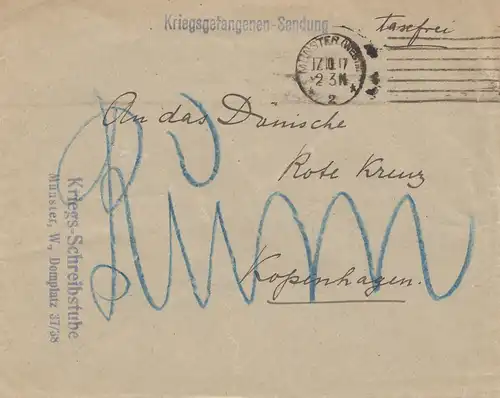 Kriegsgefangenen-Sendung
taxefrei
MÜNSTER (WESTF.)
17.10.17
2-3 N.
2
An das Dänische
Rote Kreuz
Kopenhagen.
Kriegs-Schreibstube
Münster, W., Domplatz 37/38